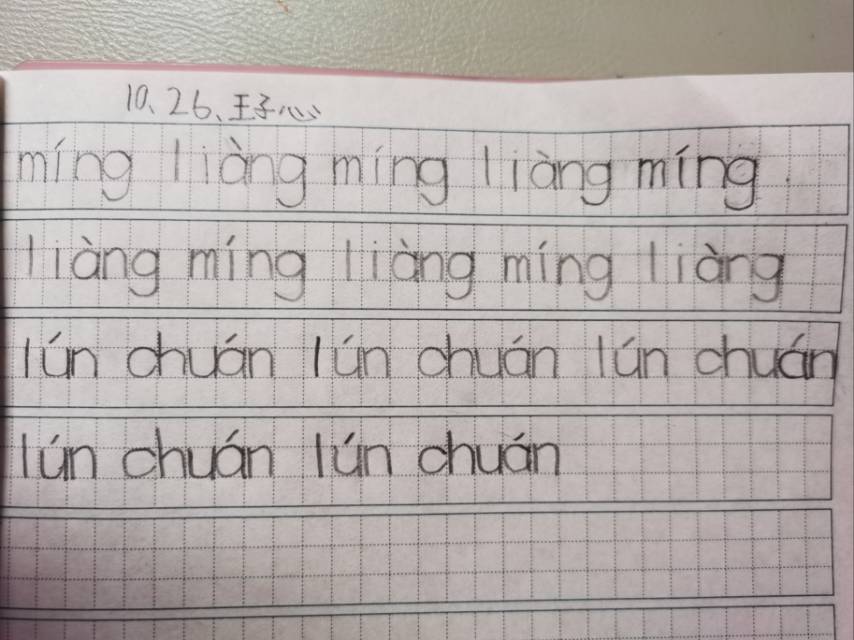 10、26、王子心
míng liàng míng liàng míng
liàng míng liàng míng liàng
lún chuán lún chuán lún chuán
lún chuán lún chuán